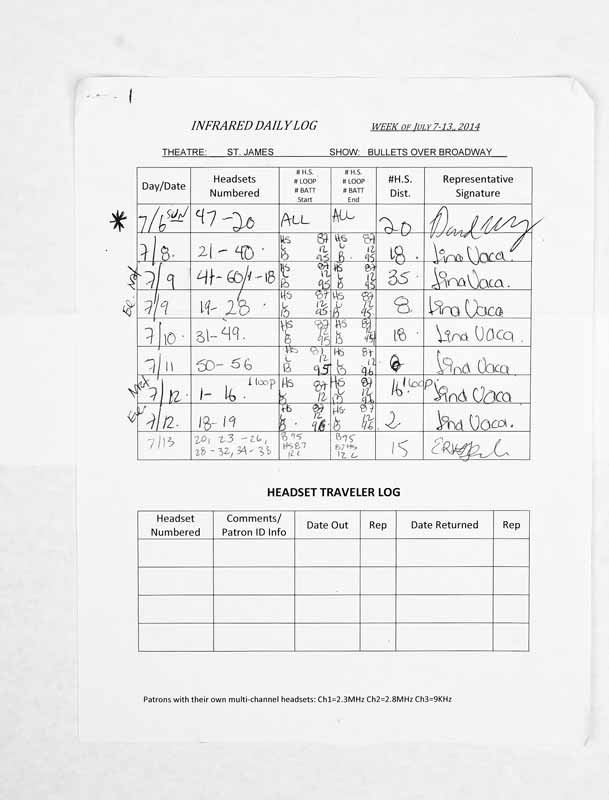 INFRARED DAILY LOG WEEK OF JULY 7-13, 2014
THEATRE: ST. JAMES SHOW: BULLETS OVER BROADWAY
Day/Date Headsets Numbered # H.S. # LOOP # BATT Start # H.S. # LOOP # BATT End #H.S. Dist. Representative Signature
* 7/6 SUN 47-20 ALL ALL 20
7/8. 21-40. HS 87 L 12 B 95 HS 87 L 12 B. 95 18. Lina Vaca.
Mat 7/9 41-60/1-18 HS 87 L 12 B 95 HS 87 L 12 B 95 35. Lina Vaca.
Ev. 7/9 19-28 HS 87 L 12 B 95 HS 87 L 12 B 95 8. Lina Vaca
7/10 31-49. HS 87 L 12 B 95 HS 87 L 12 B 95 18. Lina Vaca.
7/11 50-56 HS 87 L 12 B 95 HS 87 L 12 B 96 Lina Vaca.
Mat 7/12 1-16. 1 loop HS 87 L 12 B 96 HS 87 L 12 B 96 16 1 loop Lina Vaca
Eve. 7/12. 18-19 HS 87 L 12 B. 96 HS 87 L 12 B 96 2 Lina Vaca.
7/13 20, 23-26, 28-32, 34-38 B 95 HS 87 12 L B95 87 HS 12 L 15
HEADSET TRAVELER LOG
Headset Numbered Comments/ Patron ID Info Date Out Rep Date Returned Rep
Patrons with their own multi-channel headsets: Ch1=2.3MHz Ch2=2.8MHz Ch3=9KHz